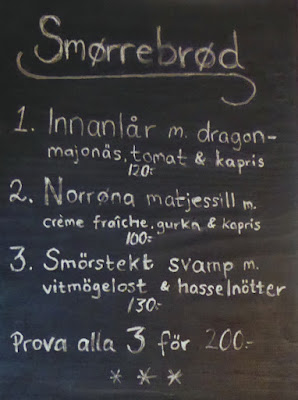 Smørrebrød
1. Innanlår m. dragon-
majonäs, tomat & kapris
120:-
2. Norrøna matjessill m.
crème fraîche, gurka & kapris
100:-
3. Smörstekt svamp m.
vitmögelost & hasselnötter
130:-
Prova alla 3 för 200:-
* * *